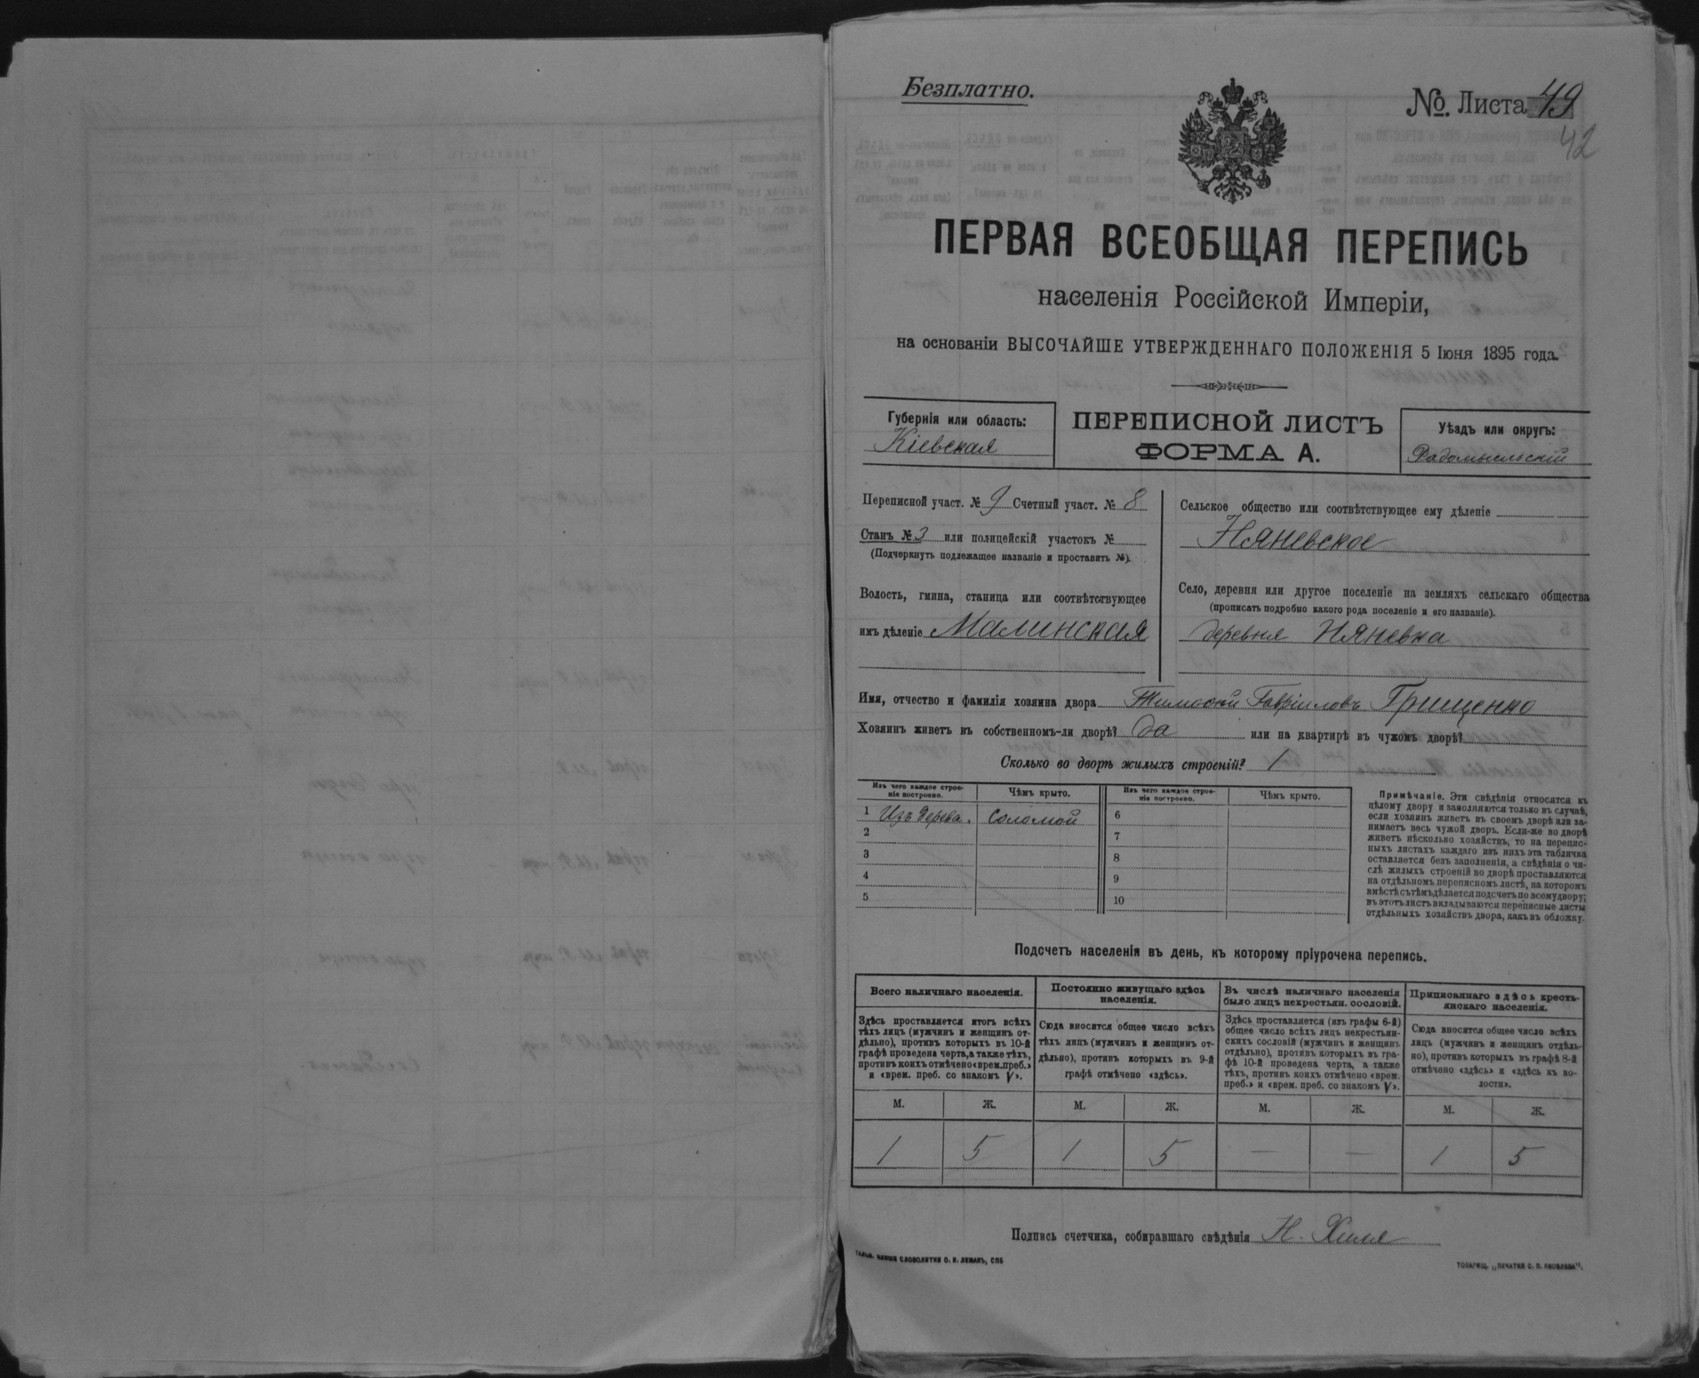 Безплатно.
№. Листа 49
42
ПЕРВАЯ ВСЕОБЩАЯ ПЕРЕПИСЬ
населенія Россійской Имперіи,
на основаніи ВЫСОЧАЙШЕ УТВЕРЖДЕННАГО ПОЛОЖЕНІЯ 5 Іюня 1895 года.
Губернія или область:
Кіевская
ПЕРЕПИСНОЙ ЛИСТЪ
ФОРМА А.
Уѣздъ или округъ:
Радомысльскій
Переписной участ. № 9 Счетный участ. № 8
Станъ № 3 или полицейскій участокъ №
(Подчеркнуть подлежащее названіе и проставить №).
Волость, гмина, станица или соотвѣтствующее
имъ дѣленіе Малинская
Сельское общество или соотвѣтствующее ему дѣленіе
Няневское
Село, деревня или другое поселеніе на земляхъ сельскаго общества
(прописать подробно какого рода поселеніе и его названіе).
деревня Няневка
Имя, отчество и фамилія хозяина двора Тимофей Гавріиловъ Грищенко
Хозяинъ живетъ въ собственномъ-ли дворѣ? Да или на квартирѣ въ чужомъ дворѣ?
Сколько во дворѣ жилыхъ строеній? 1
Изъ чего каждое строе-
ніе построено.
Чѣмъ крыто.
Изъ чего каждое строе-
ніе построено.
Чѣмъ крыто.
1 Изъ дерева. Соломой 6
2 7
3 8
4 9
5 10
Примѣчаніе. Эти свѣдѣнія относятся къ
цѣлому двору и заполняются только въ случаѣ,
если хозяинъ живетъ въ своемъ дворѣ или за-
нимаетъ весь чужой дворъ. Если-же во дворѣ
живетъ нѣсколько хозяйствъ, то на перепис-
ныхъ листахъ каждаго изъ нихъ эта табличка
оставляется безъ заполненія, а свѣдѣнія о чи-
слѣ жилыхъ строеній во дворѣ проставляются
на отдѣльномъ переписномъ листѣ, на которомъ
вмѣстѣ съ тѣмъ дѣлается подсчетъ по всему двору;
въ этотъ листъ вкладываются переписные листы
отдѣльныхъ хозяйствъ двора, какъ въ обложку.
Подсчетъ населенія въ день, къ которому пріурочена перепись.
Всего наличнаго населенія.
Здѣсь проставляется итогъ всѣхъ
тѣхъ лицъ (мужчинъ и женщинъ от-
дѣльно), противъ которыхъ въ 10-й
графѣ проведена черта, а также тѣхъ,
противъ коихъ отмѣчено «врем. преб.»
и «врем. преб. со знакомъ V».
Постоянно живущаго здѣсь
населенія.
Сюда вносится общее число всѣхъ
тѣхъ лицъ (мужчинъ и женщинъ от-
дѣльно), противъ которыхъ въ 9-й
графѣ отмѣчено «здѣсь».
Въ числѣ наличнаго населенія
было лицъ некрестьян. сословій.
Здѣсь проставляется (изъ графы 6-й)
общее число всѣхъ лицъ некрестьян-
скихъ сословій (мужчинъ и женщинъ
отдѣльно), противъ которыхъ въ гра-
фѣ 10-й проведена черта, а также
тѣхъ, противъ коихъ отмѣчено «врем.
преб.» и «врем. преб. со знакомъ V».
Приписаннаго здѣсь кресть-
янскаго населенія.
Сюда вносится общее число всѣхъ
лицъ (мужчинъ и женщинъ отдѣль-
но), противъ которыхъ въ графѣ 8-й
отмѣчено «здѣсь» и «здѣсь въ во-
лости».
М. Ж. М. Ж. М. Ж. М. Ж.
1 5 1 5 — — 1 5
Подпись счетчика, собиравшаго свѣдѣнія Н. Хиля
СЛОВОЛИТНИ О. И. ЛЕМАНЪ, СПБ
ТОВАРИЩ. „ПЕЧАТНЯ С. П. ЯКОВЛЕВА".